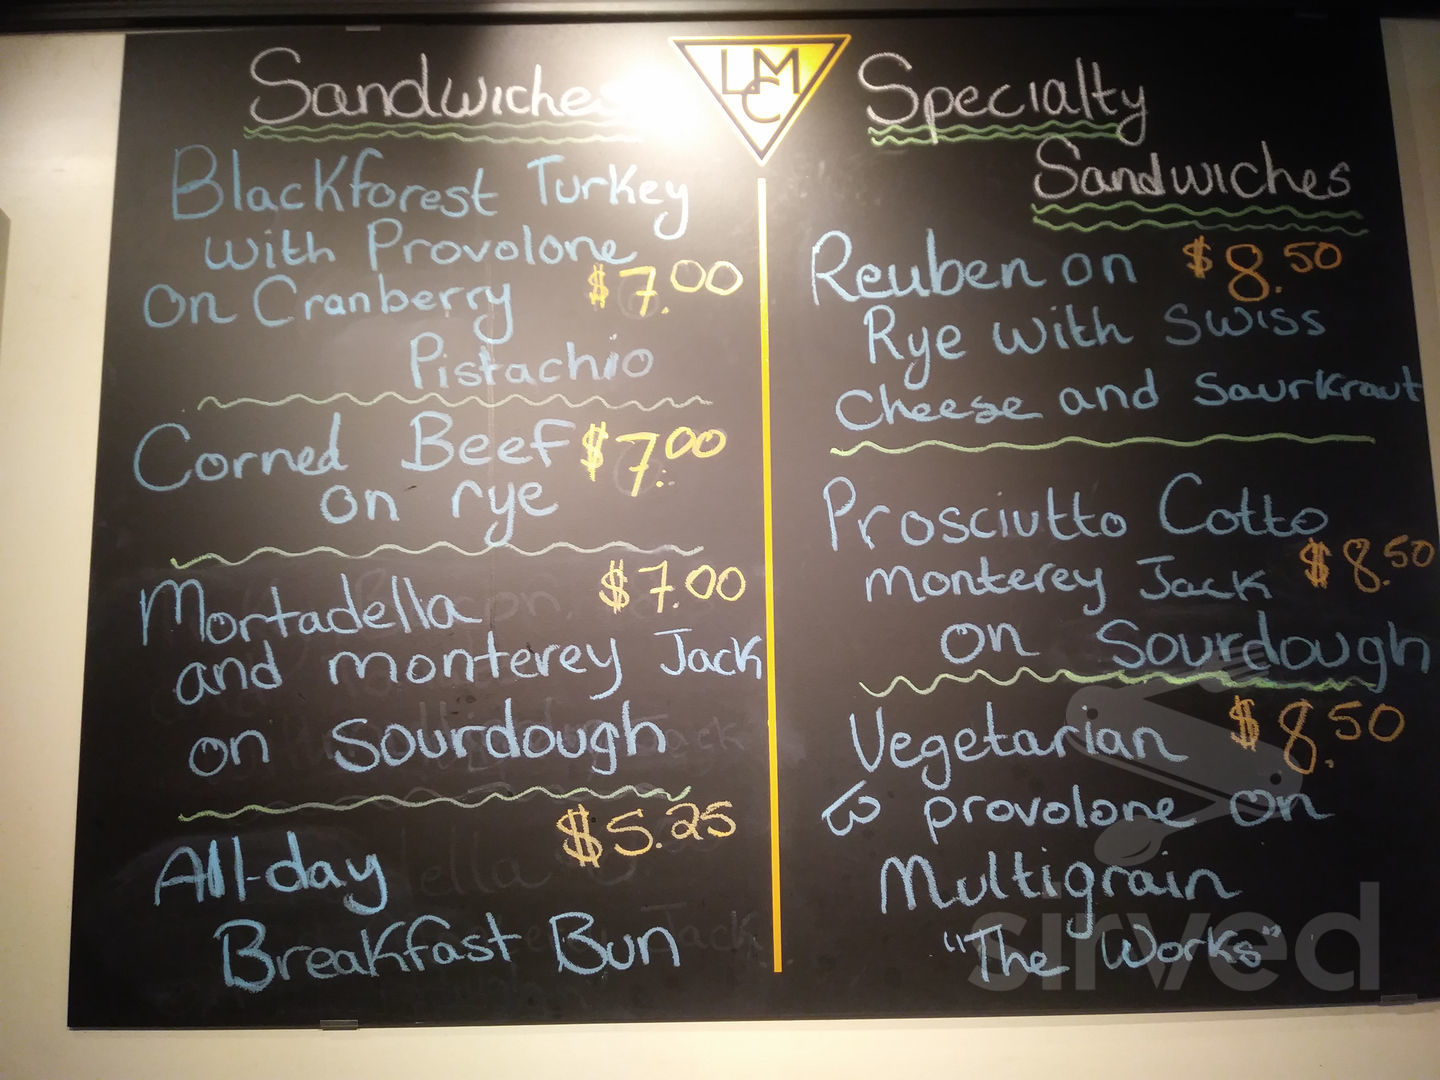 LMC
Sandwiches
Blackforest Turkey
with Provolone
on Cranberry $7.00
Pistachio
Corned Beef $7.00
on rye
Mortadella $7.00
and monterey Jack
on Sourdough
All-day $5.25
Breakfast Bun
Specialty
Sandwiches
Reuben on $8.50
Rye with Swiss
Cheese and Saurkraut
Prosciutto Cotto
Monterey Jack $8.50
on Sourdough
Vegetarian $8.50
provolone on
Multigrain
"The Works"
sirved